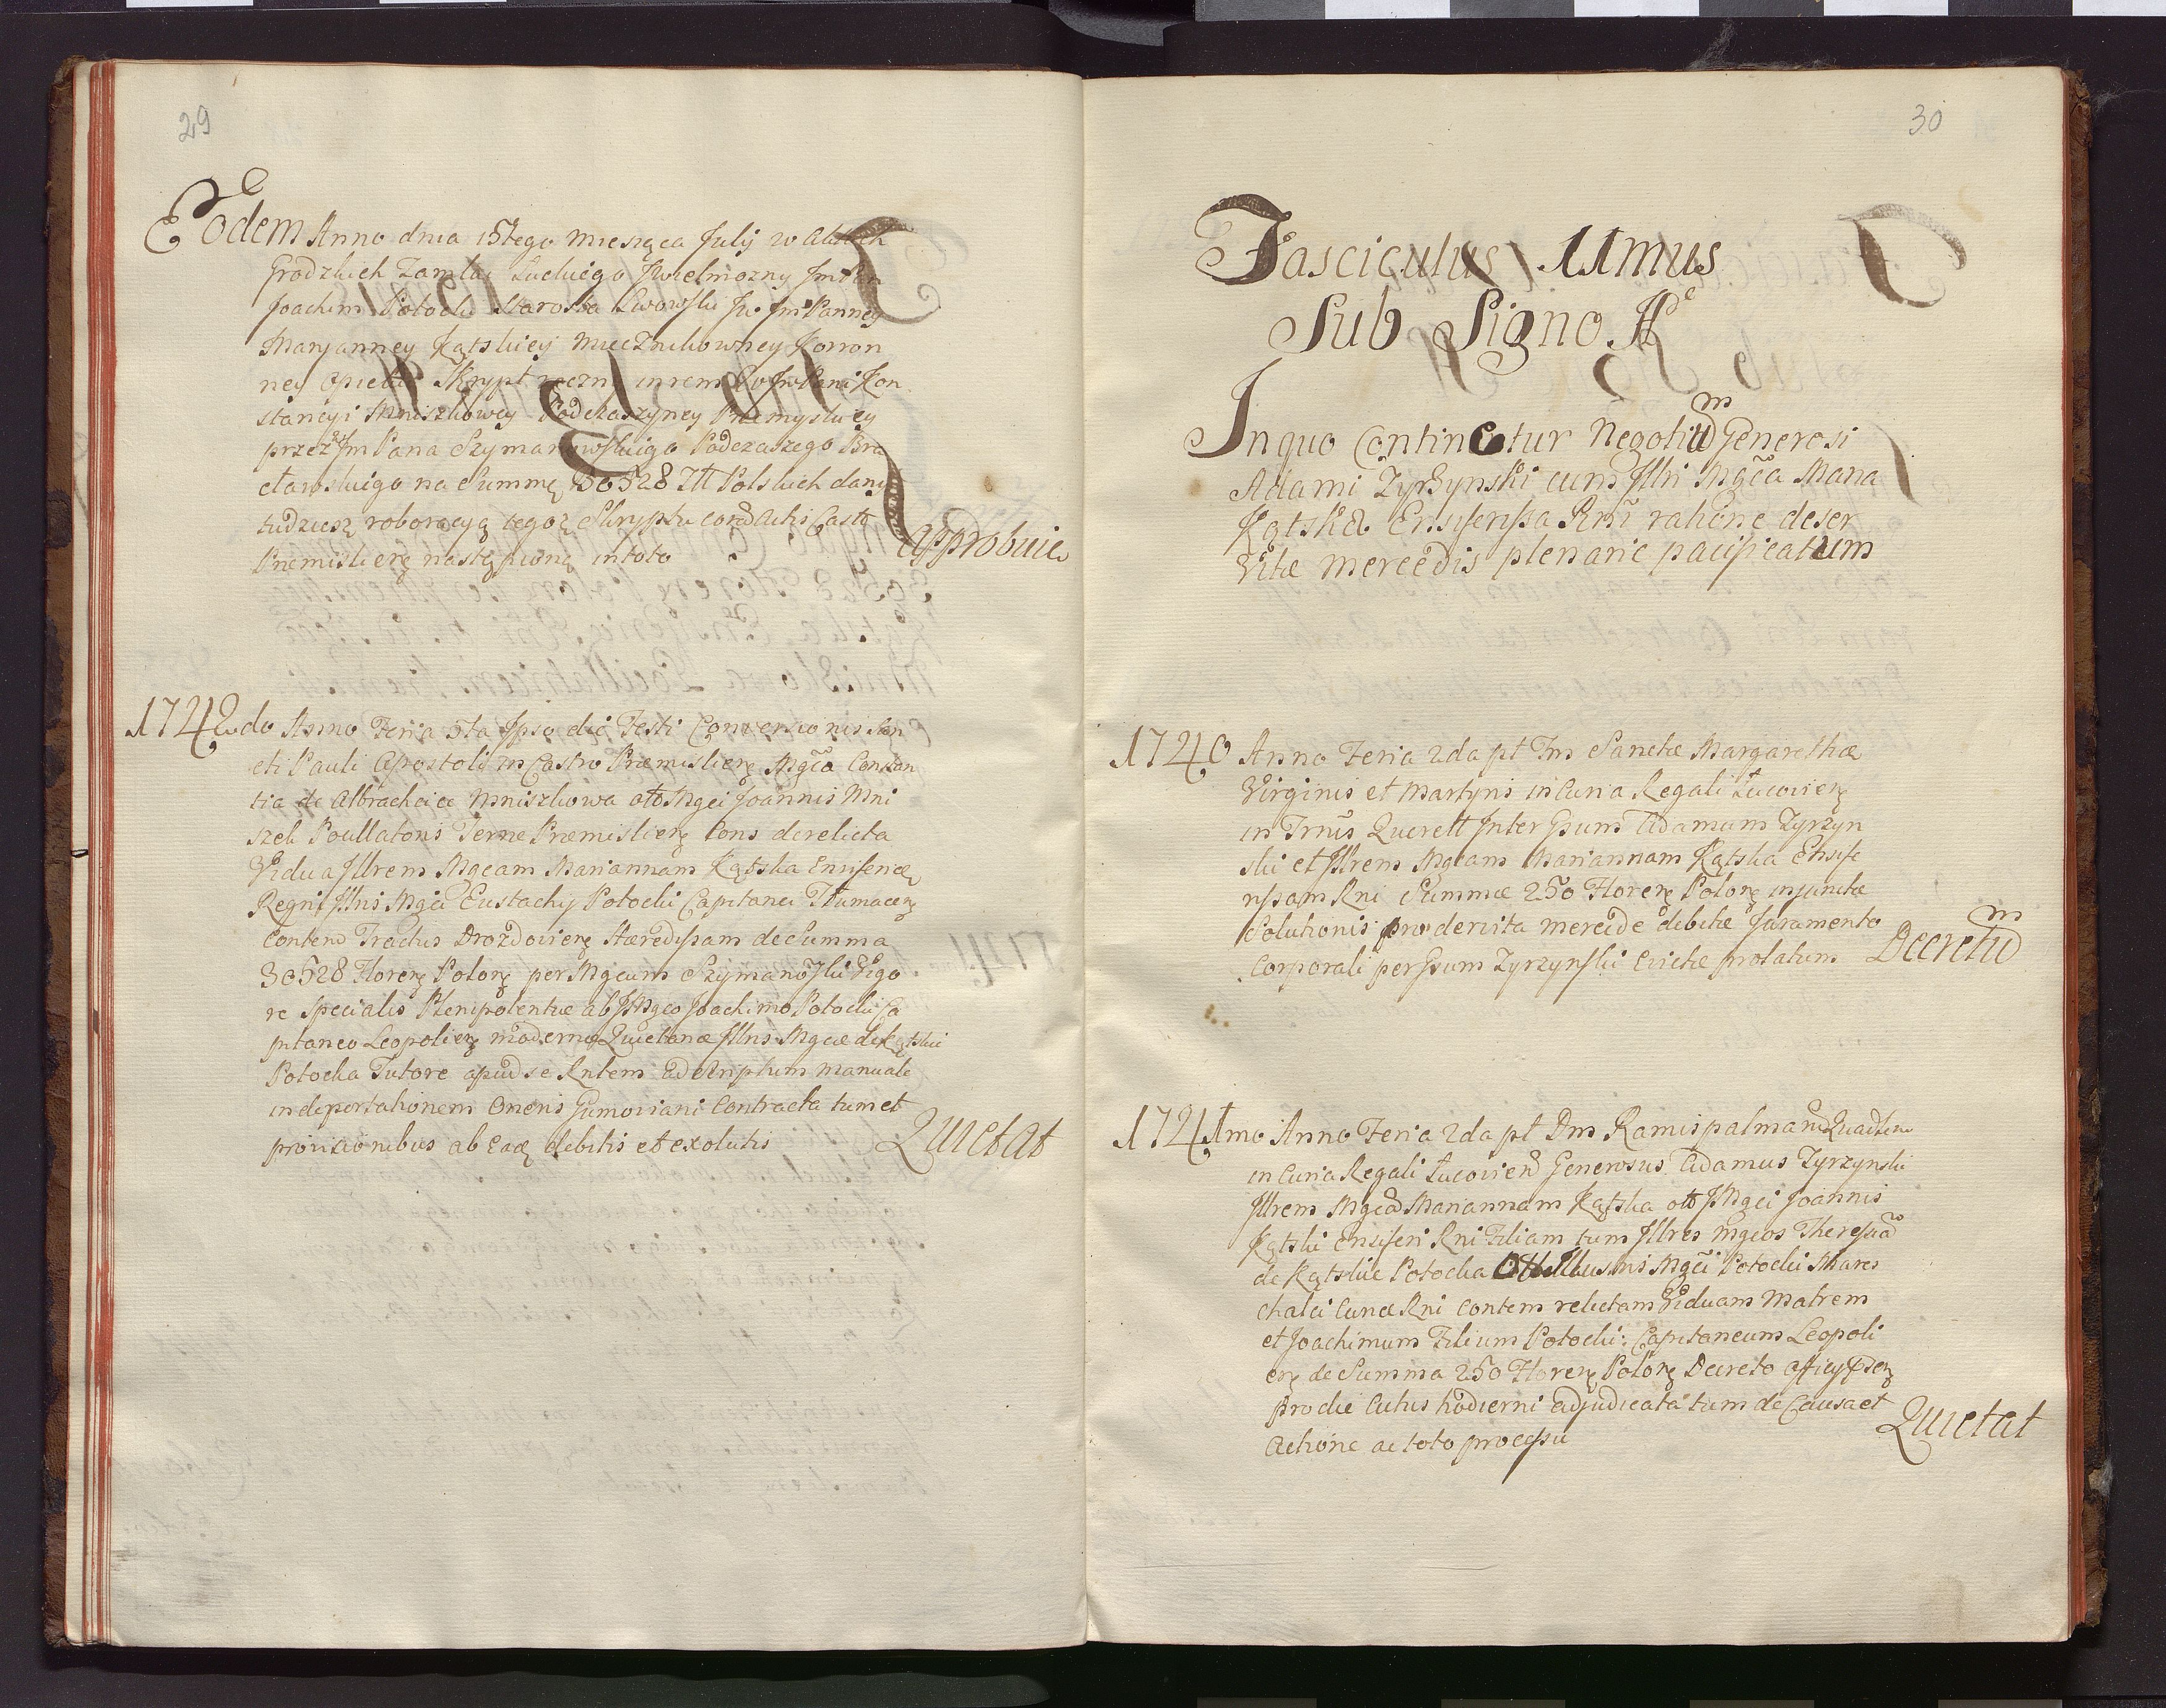 29
Eodem Anno dnia 15tego Miesiąca Julij w Aktach
Grodzkich Zamku Luckiego JWielmozny Jm Pan
Joachim Potocki Starosta Lwowski Jw Jm Panney
Maryanney Kątskiey Miecznikowney Korron
ney Opiekun Skrypt reczny in rem Jw Pani Kon
stancyi Mniszkowey Podczaszyney Przemyskiey
przez Jm Pana Szymanowskiego Podczaszego Bra
cławskiego na Summę 30528 Złł Polskich dany
tudziesz roboracyą tegoż Skryptu coram Actis Castr
Premislien nastąpioną in toto
Approbuie
1742do Anno Feria 5ta Ipso die Festi Conversionis San
cti Pauli Apostoli in Castro Præmislien Mgca Constan
tia de Albrachcice Mniszkowa olim Mgci Joannis Mni
szek Pocillatoris Terræ Præmislien Cons derelicta
Vidua Illrem Mgcam Mariannam Kątska Ensiferidę
Regni Illris Mgci Eustachij Potocki Capitanei Tłumacen
Contem Tractus Drozdovien Hæredissam de Summa
30528 Floren Polon per Mgcum Szymanowski Vigo
re Specialis Plenipotentiæ ab J Mgco Joachimo Potocki Ca
pitaneo Leopolien moderno Quietanæ Illris Mgcæ de Kątskie
Potocka Tutore apud se Rntem ad Scriptum manuale
in deportationem Oneris Gumoviani Contracta tum et
provisionibus ab eade debitis et exolutis
Quietat
30
Fasciculus 11mus
Sub Signo
In quo Continetur Negotium Generosi
Adami Zyrzynski cum Illri Mgca Maria
Kątska Ensiferissa Rni ratione deser
vitæ mercedis plenarie pacificatum
1740 Anno Feria 2da pt Fm Sanctæ Margarethæ
Virginis et Martyris in Curia Regali Łucovien
in Trnis Querell Inter Gsum Adamum Zyrzyn
ski et Illrem Mgcam Mariannam Kątska Ensife
rissam Rni Summæ 250 Floren Polon injunctæ
Solutionis pro deservita mercede debitæ Juramento
Corporali per Gsum Zyrzynski Circa prolatum
Decretum
1741mo Anno Feria 2da pt Dm Ramispalmarum
in Curia Regali Łucovien Generosus Adamus Zyrzynski
Illrem Mgcam Mariannam Kątska olim J Mgci Joannis
Kątski Ensiferi Rni Filiam tum Illres Mgcos Theresiam
de Kątskie Potocka Mgci Potocki Mares
chalci Curiæ Rni Contem relictam Viduam Matrem
et Joachimum Filium Potocki Capitaneum Leopoli
en de Summa 250 Floren Polon Decreto Officij
pro die Actus hodierni adjudicata tum de Causa et
Actione ac toto processu
Quietat